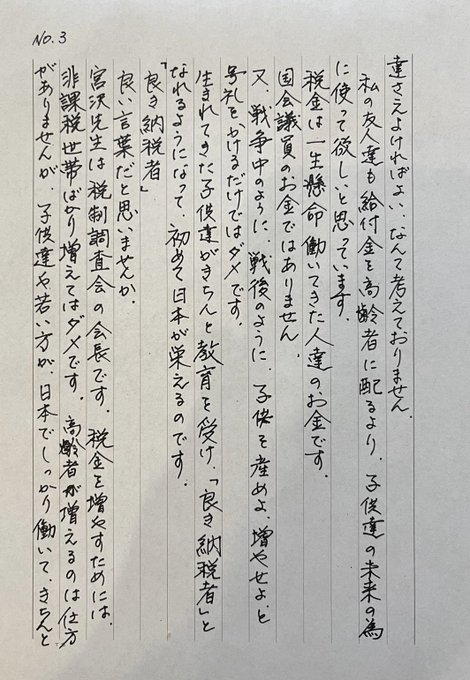 No.3
達さえよければよい、なんて考えておりません。
私の友人達も給付金を高齢者に配るより、子供達の未来の為
に使って欲しいと思っています。
税金は一生懸命働いてきた人達のお金です。
国会議員のお金ではありません。
又、戦争中のように、戦後のように、子供を産めよ、増やせよ、と
号礼をかけるだけではダメです。
生まれてきた子供達がきちんと教育を受け、「良き納税者」と
なれるようになって、初めて日本が栄えるのです。
「良き納税者」
良い言葉だと思いませんか。
宮沢先生は税制調査会の会長です。税金を増やすためには、
非課税世帯ばかり増えてはダメです。高齢者が増えるのは仕方
がありませんが、子供達や若い方が、日本でしっかり働いて、きちんと